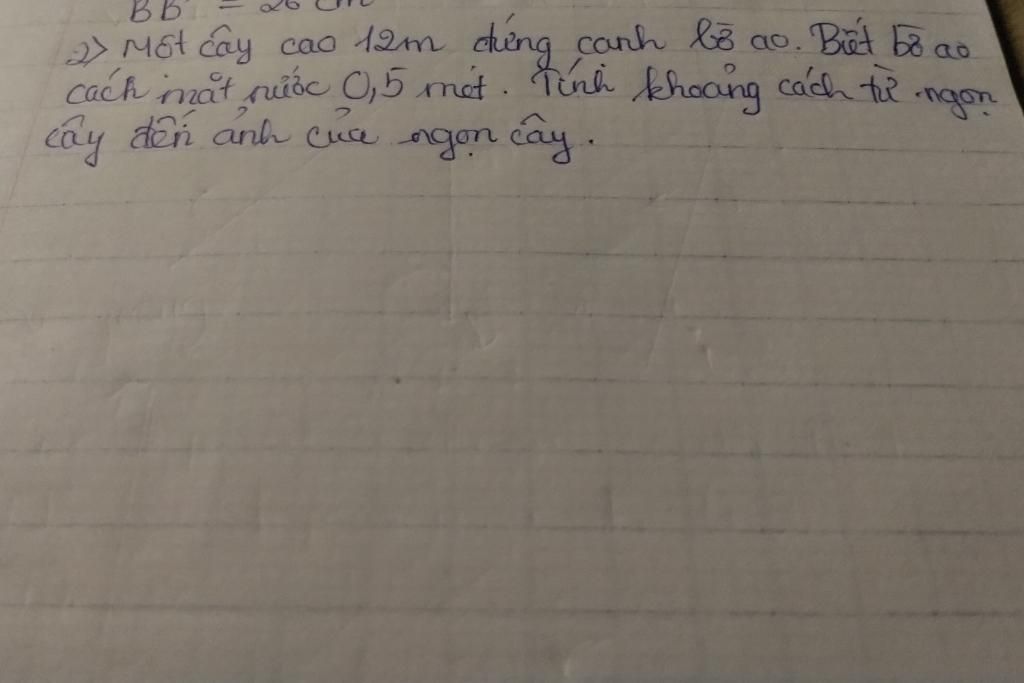 BB' = 26 cm
2> Một cây cao 12m đứng cạnh bờ ao. Biết bờ ao
cách mặt nước 0,5 mét. Tính khoảng cách từ ngọn
cây đến ảnh của ngọn cây.